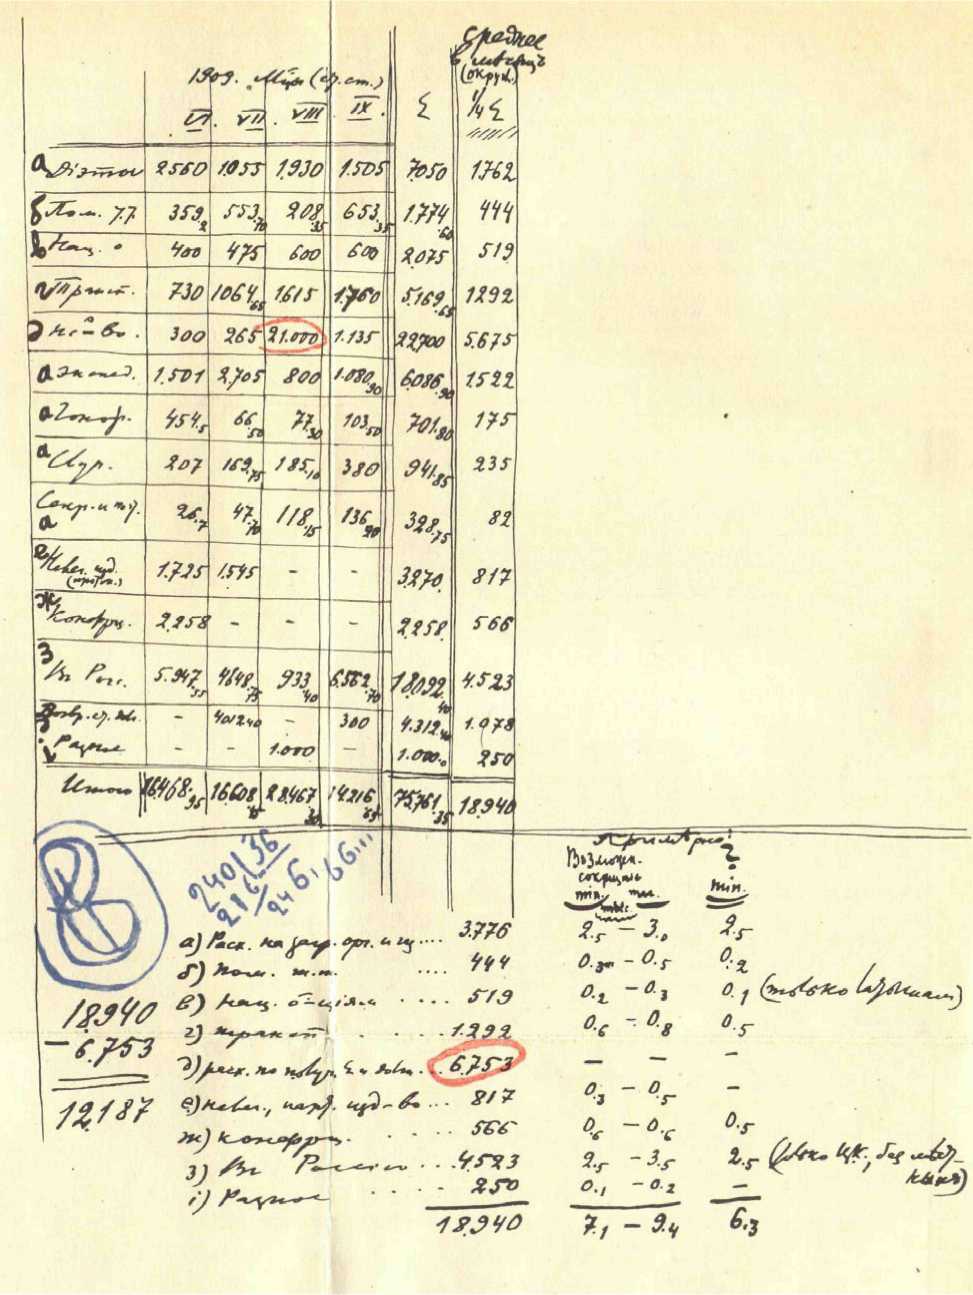 среднее
(окруж.)
1909. Мцы (ср. ст.)
VI. VII VIII IX. Σ 1/4 Σ
а Діэты 2560 1.055 1.930 1.505 7.050 1.762
б Пом. 359.2 553.70 208.35 653.35 1.774.60 444
в Нац. о 400 475 600 600 2.075 519
г Трансп. 730 1064.65 1.615 1.760 5.169.65 1292
д 300 265 21.000 1.135 22.700 5.675
а Экспед. 1.501 2.705 800 1.080.90 6.086.90 1522
а Гонор. 454.5 66.50 77.30 103.50 701.80 175
а 207 169.75 185.10 380 941.85 235
а Секр. и 26.7 47.70 118.15 136.20 328.75 82
е изд. 1.725 1.545 - - 3.270. 817
ж Конфрц. 2.258 - - - 2.258. 566
з Въ Рос. 5.947.55 4648.75 933.40 6.562.70 18.092.40 4.523
д - 4012.40 - 300 4.312.40 1.078
і Разное - - 1.000 - 1.000.0 250
Итого 16.468.95 16.608.15 28.467.30 14.216.65 75.761.35 18.940
240136
246,66...
Примѣрно!
Возможн. ?
сокращенье
min. max. min.
тыс.
а) Расх. на загр. орг. и .... 3.776 2.5 – 3.0 2.5
б) пом. т.т. .... 444 0.3 – 0.5 0.2
в) нац. о-ціям .... 519 0.2 – 0.3 0.1 (только латышам)
г) транспт. ..... 1.292 0.6 – 0.8 0.5
д) расх. по ... 6.753 – – –
е) нелег., парт. изд-во ... 817 0.3 – 0.5 –
ж) конфрц. .... 566 0.6 – 0.6 0.5
з) Въ Россію ... 4.523 2.5 – 3.5 2.5 (только ЦК, без
і) Разное .... 250 0.1 – 0.2 –
18.940 7.1 – 9.4 6.3
18.940
– 6.753
12.187